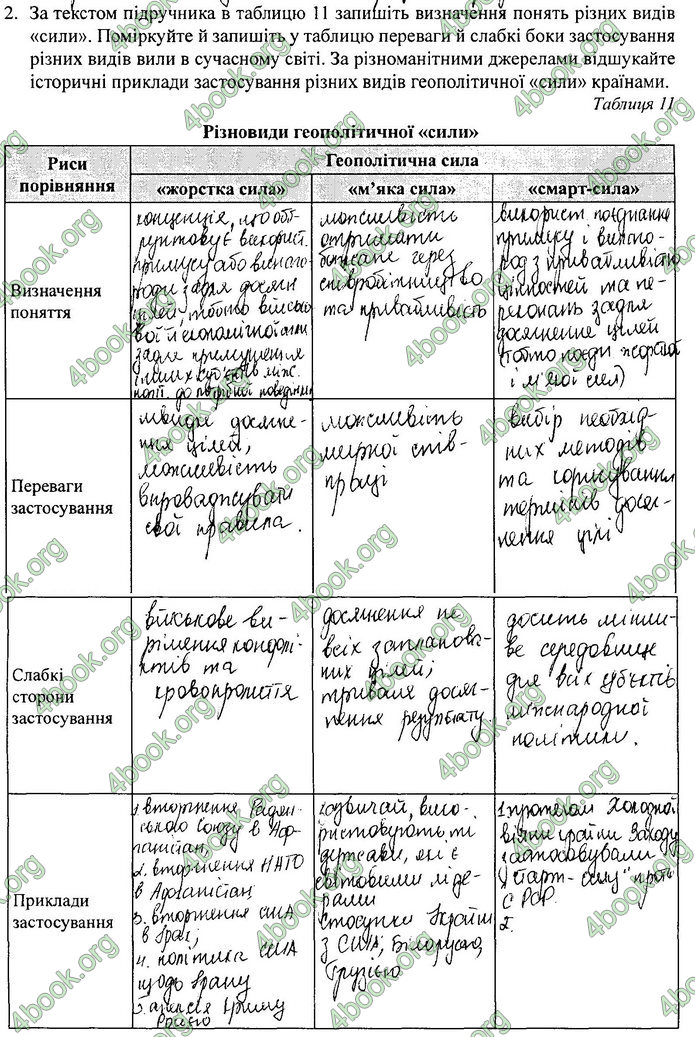 2. За текстом підручника в таблицю 11 запишіть визначення понять різних видів
«сили». Поміркуйте й запишіть у таблицю переваги й слабкі боки застосування
різних видів вили в сучасному світі. За різноманітними джерелами відшукайте
історичні приклади застосування різних видів геополітичної «сили» країнами.
Таблиця 11
Різновиди геополітичної «сили»
Риси
порівняння
Геополітична сила
«жорстка сила»
«м’яка сила»
«смарт-сила»
Визначення
поняття
концепція, що обґ-
рунтовує викорис.
примусу або винаго-
роди задля досягн.
цілей, тобто військо
вої й економічної
задля примушення
інших суб'єктів між.
політ. до потрібної поведінки
можливість
отримати
бажане через
співробітництво
та привабливість
використ. поєднання
примусу і винаго-
род з привабливістю
цінностей та пе-
реконань задля
досягнення цілей
(тобто поєдн. жорсткої
і м'якої сил)
Переваги
застосування
швидке досягне-
ння цілей,
можливість
впроваджувати
свої правила.
можливість
мирної спів-
праці
вибір необхід-
них методів
та корегування
термінів досяг-
нення цілі
Слабкі
сторони
застосування
військове ви-
рішення конфлі-
ктів та
кровопролиття
досягнення не
всіх запланова-
них цілей;
тривале досяг-
нення результату
досить мінли-
ве середовище
для всіх суб'єктів
міжнародної
політики.
Приклади
застосування
1. вторгнення Радян-
ського Союзу в Аф-
ганістан,
2. вторгнення НАТО
в Афганістан
3. вторгнення США
в Ірак;
4. політика США
щодо Ірану
5. анексія Криму
Росією
зазвичай, вико-
ристовують ті
держави, які є
світовими ліде-
рами
стосунки України
з США, Білорусією,
Грузією
1. протягом Холодної
війни країни Заходу
застосовували
"смарт-силу" проти
СРСР.
2.
4book.org